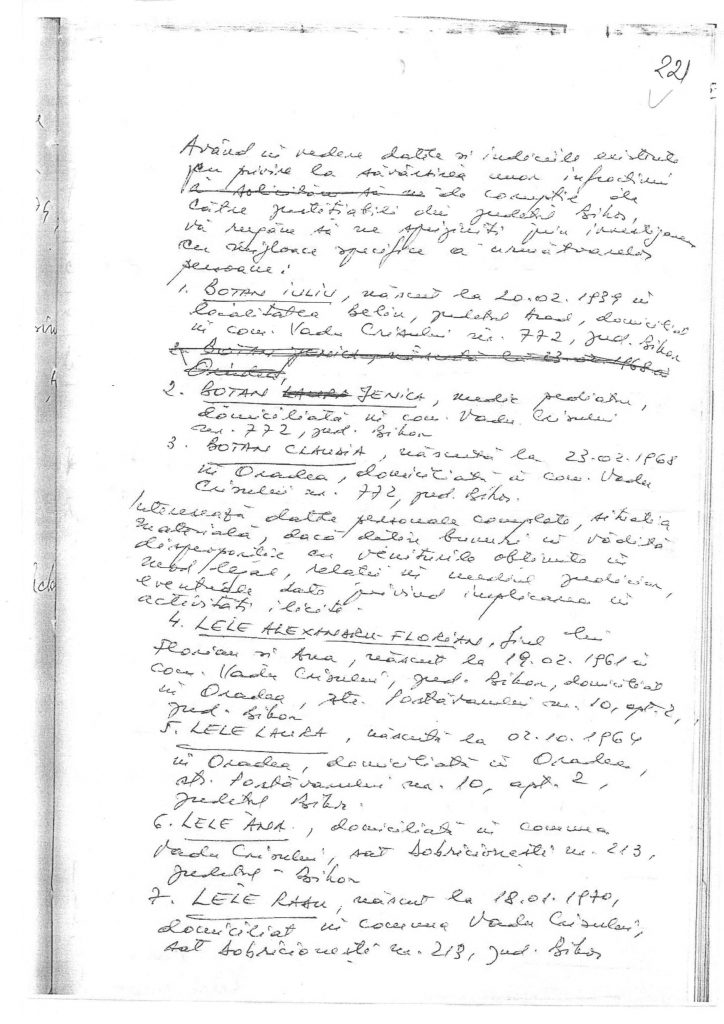 221
Având în vedere datele și indiciile existente
cu privire la săvârșirea unor infracțiuni
a solicităm să ne de corupție de
către justițiabili din județul Bihor,
vă rugăm să ne sprijiniți prin investigarea
cu mijloace specifice a următoarelor
persoane:
1. BOTAN IULIU, născut la 20.02.1939 în
localitatea Beliu, județul Arad, domiciliat
în com. Vadu Crișului nr. 772, jud. Bihor
2. BOTAN JENICA, născută la 23.02.1968 în
Oradea,
2. BOTAN LAURA JENICA, medic pediatru,
domiciliată în com. Vadu Crișului
nr. 772, jud. Bihor
3. BOTAN CLAUDIA, născută la 23.02.1968
în Oradea, domiciliată în com. Vadu
Crișului nr. 772, jud. Bihor.
Interesează datele personale complete, situația
materială, dacă dețin bunuri în vădită
disproporție cu veniturile obținute în
mod legal, relații în mediul judiciar,
eventuale date privind implicarea în
activități ilicite.
4. LELE ALEXANDRU-FLORIAN, fiul lui
Florian și Ana, născut la 19.02.1961 în
com. Vadu Crișului, jud. Bihor, domiciliat
în Oradea, str. Postăvarului nr. 10, apt. 2,
jud. Bihor
5. LELE LAURA, născută la 02.10.1964
în Oradea, domiciliată în Oradea,
str. Postăvarului nr. 10, apt. 2,
județul Bihor.
6. LELE ANA, domiciliată în comuna
Vadu Crișului, sat Dobricionești nr. 213,
județul Bihor
7. LELE RADU, născut la 18.01.1970,
domiciliat în comuna Vadu Crișului,
sat Dobricionești nr. 213, jud. Bihor